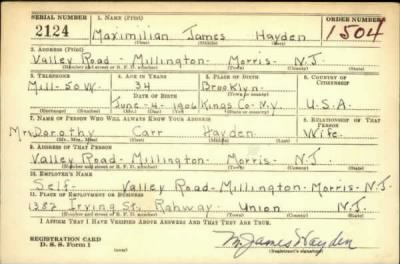 SERIAL NUMBER 1. NAME (Print) ORDER NUMBER
2124 Maximilian James Hayden 1504
(First) (Middle) (Last)
2. ADDRESS (Print)
Valley Road - Millington - Morris - N.J.
(Number and street or R. F. D. number) (Town) (County) (State)
3. TELEPHONE 4. AGE IN YEARS 5. PLACE OF BIRTH 6. COUNTRY OF CITIZENSHIP
Mill-50W. 34 Brooklyn
(Town or county)
DATE OF BIRTH
June - 4 - 1906 Kings Co. N.Y. U.S.A.
(Exchange) (Number) (Mo.) (Day) (Yr.) (State or country)
7. NAME OF PERSON WHO WILL ALWAYS KNOW YOUR ADDRESS 8. RELATIONSHIP OF THAT PERSON
Mrs. Dorothy Carr Hayden Wife
(Mr., Mrs., Miss) (First) (Middle) (Last)
9. ADDRESS OF THAT PERSON
Valley Road - Millington - Morris - N.J.
(Number and street or R. F. D. number) (Town) (County) (State)
10. EMPLOYER'S NAME
Self - Valley Road - Millington - Morris - N.J.
11. PLACE OF EMPLOYMENT OR BUSINESS
1382 Irving St., Rahway - Union N.J.
(Number and street or R. F. D. number) (Town) (County) (State)
I AFFIRM THAT I HAVE VERIFIED ABOVE ANSWERS AND THAT THEY ARE TRUE.
REGISTRATION CARD
D. S. S. Form 1
M. James Hayden
(Registrant's signature)